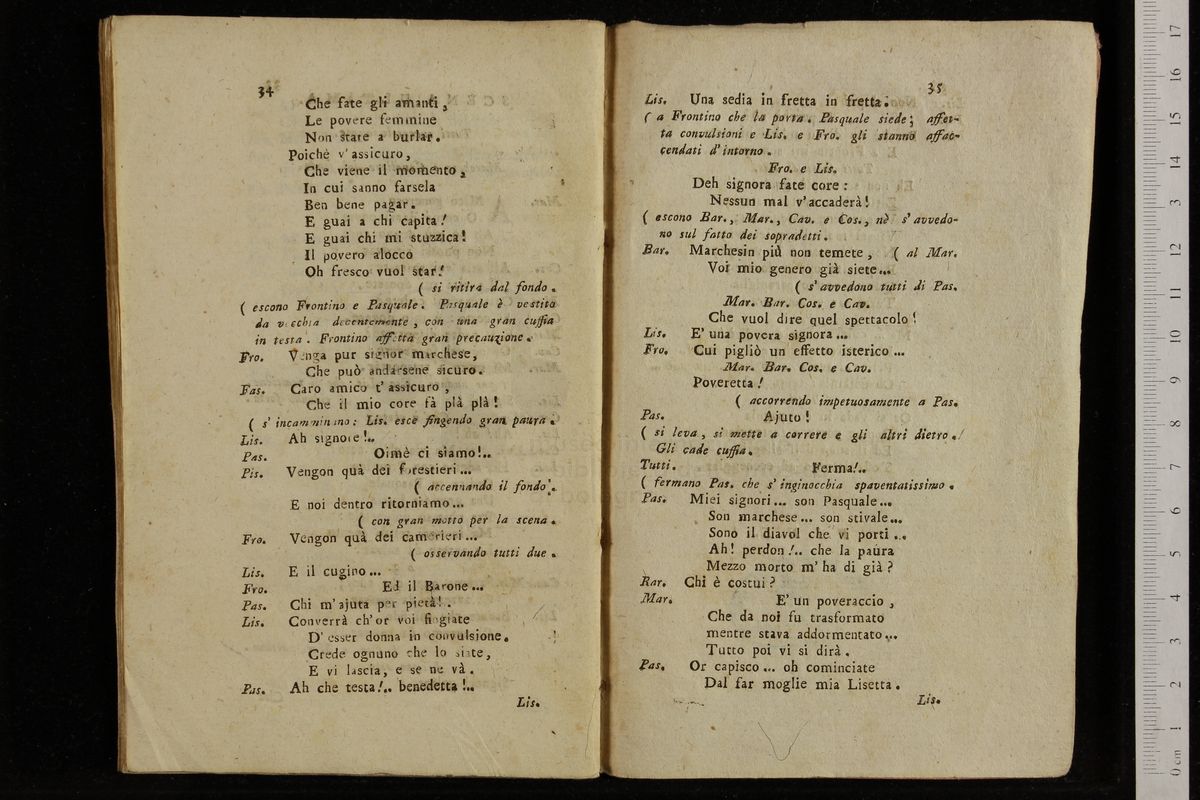 34
Che fate gli amanti,
Le povere femmine
Non state a burlar.
Poichè v'assicuro,
Che viene il momento,
In cui sanno farsela
Ben bene pagar.
E guai a chi capita!
E guai chi mi stuzzica!
Il povero alocco
Oh fresco vuol star!
( si ritira dal fondo.
( escono Frontino e Pasquale. Pasquale è vestito
da vecchia decentemente, con una gran cuffia
in testa. Frontino affetta gran precauzione.
Fro. Venga pur signor marchese,
Che può andarsene sicuro.
Pas. Caro amico t'assicuro,
Che il mio core fà plà plà!
( s'incamminano: Lis. esce fingendo gran paura.
Lis. Ah signore!..
Pas. Oimè ci siamo!..
Lis. Vengon quà dei forestieri...
( accennando il fondo.
E noi dentro ritorniamo...
( con gran motto per la scena.
Fro. Vengon quà dei camerieri...
( osservando tutti due.
Lis. E il cugino...
Fro. Ed il Barone...
Pas. Chi m'ajuta per pietà!.
Lis. Converrà ch'or voi fingiate
D'esser donna in convulsione.
Crede ognuno che lo siate,
E vi lascia, e se ne và.
Pas. Ah che testa!.. benedetta!..
Lis.
35
Lis. Una sedia in fretta in fretta.
( a Frontino che la porta. Pasquale siede; affet-
ta convulsioni e Lis. e Fro. gli stanno affac-
cendati d'intorno.
Fro. e Lis.
Deh signora fate core:
Nessun mal v'accaderà!
( escono Bar., Mar., Cav. e Cos., nè s'avvedo-
no sul fatto dei sopradetti.
Bar. Marchesin più non temete, ( al Mar.
Voi mio genero già siete...
( s'avvedono tutti di Pas.
Mar. Bar. Cos. e Cav.
Che vuol dire quel spettacolo!
Lis. E' una povera signora...
Fro. Cui pigliò un effetto isterico...
Mar. Bar. Cos. e Cav.
Poveretta!
( accorrendo impetuosamente a Pas.
Pas. Ajuto!
( si leva, si mette a correre e gli altri dietro.
Gli cade cuffia.
Tutti. Ferma!..
( fermano Pas. che s'inginocchia spaventatissimo.
Pas. Miei signori... son Pasquale...
Son marchese... son stivale...
Sono il diavol che vi porti...
Ah! perdon!.. che la paùra
Mezzo morto m'ha di già?
Bar. Chi è costui?
Mar. E' un poveraccio,
Che da noi fu trasformato
mentre stava addormentato...
Tutto poi vi si dirà.
Pas. Or capisco... oh cominciate
Dal far moglie mia Lisetta.
Lis.
0 cm 1 2 3 4 5 6 7 8 9 10 11 12 13 14 15 16 17